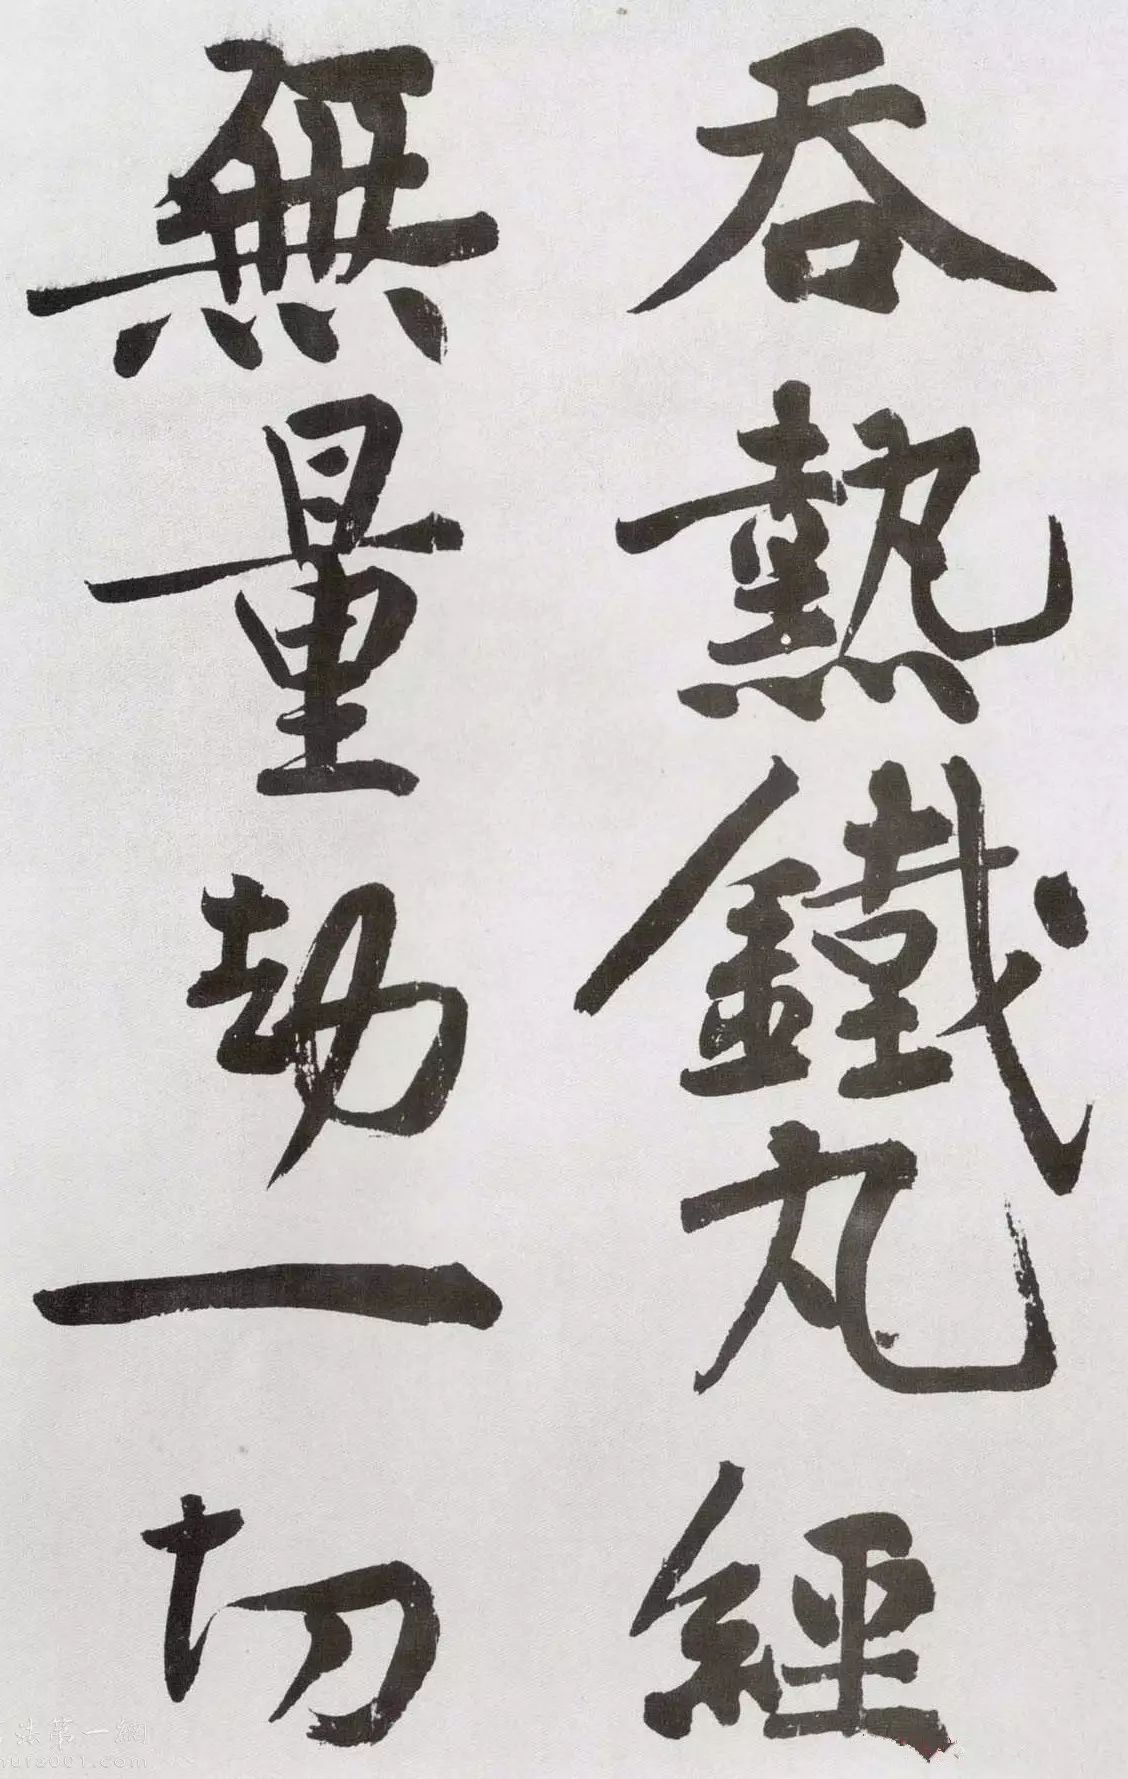 吞熱鐵丸經
無量劫一切
法第一網